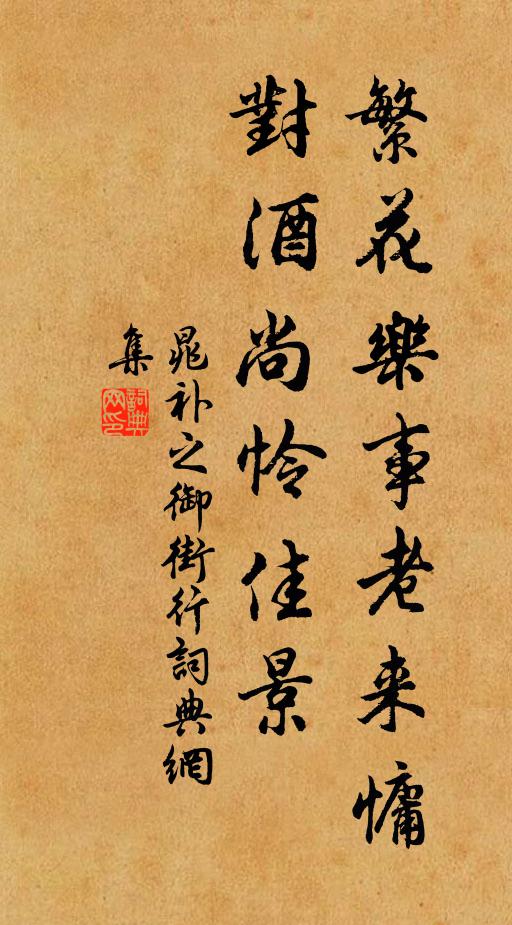 繁花樂事老来慵
對酒尚怜佳景
晁补之御街行詞典網
集
詞典
网印